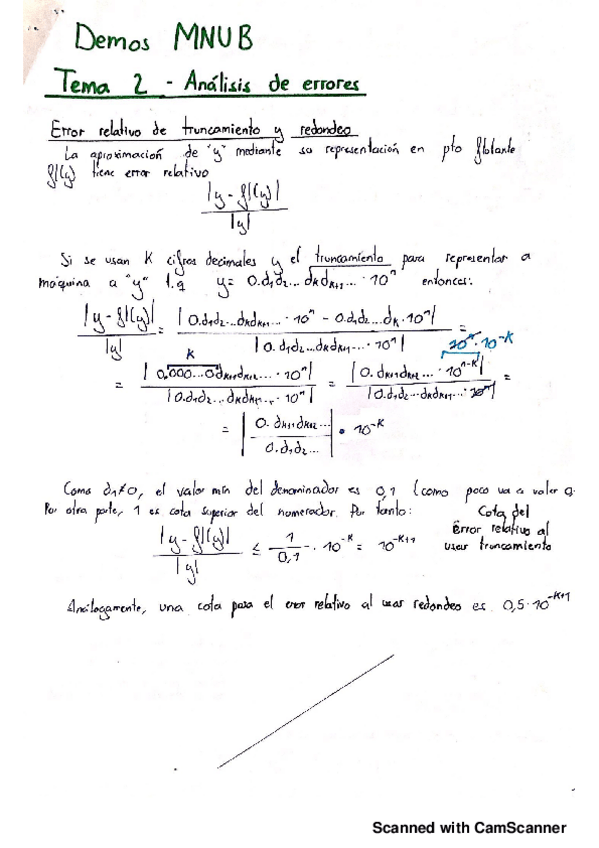 Demos MNUB
Tema 2 - Análisis de errores
Error relativo de truncamiento y redondeo
La aproximación de "y" mediante su representación en pto flotante
fl(y) tiene error relativo
|y - fl(y)| / |y|
Si se usan K cifras decimales y el truncamiento para representar a
máquina a "y" t.q y = 0.d₁d₂...dₖdₖ₊₁... · 10ⁿ entonces:
|y - fl(y)| / |y| = |0.d₁d₂...dₖdₖ₊₁... · 10ⁿ - 0.d₁d₂...dₖ · 10ⁿ| / |0.d₁d₂...dₖdₖ₊₁... · 10ⁿ| =
K
10ⁿ · 10⁻ᴷ
= |0.000...0dₖ₊₁dₖ₊₂... · 10ⁿ| / |0.d₁d₂...dₖdₖ₊₁... · 10ⁿ| = |0.dₖ₊₁dₖ₊₂... · 10ⁿ⁻ᴷ| / |0.d₁d₂...dₖdₖ₊₁... · 10ⁿ| =
= |0.dₖ₊₁dₖ₊₂... / 0.d₁d₂...| · 10⁻ᴷ
Como d₁≠0, el valor mín del denominador es 0,1 (como poco va a valer
Por otra parte, 1 es cota superior del numerador. Por tanto:
|y - fl(y)| / |y| ≤ 1/0,1 · 10⁻ᴷ = 10⁻ᴷ⁺¹
Cota del
Error relativo al
usar truncamiento
Análogamente, una cota para el error relativo al usar redondeo es 0,5·10⁻ᴷ⁺¹
Scanned with CamScanner